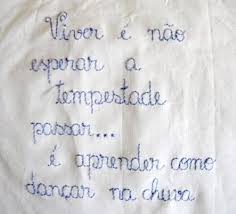 Viver é não
esperar a
tempestade
passar...
é aprender como
dançar na chuva